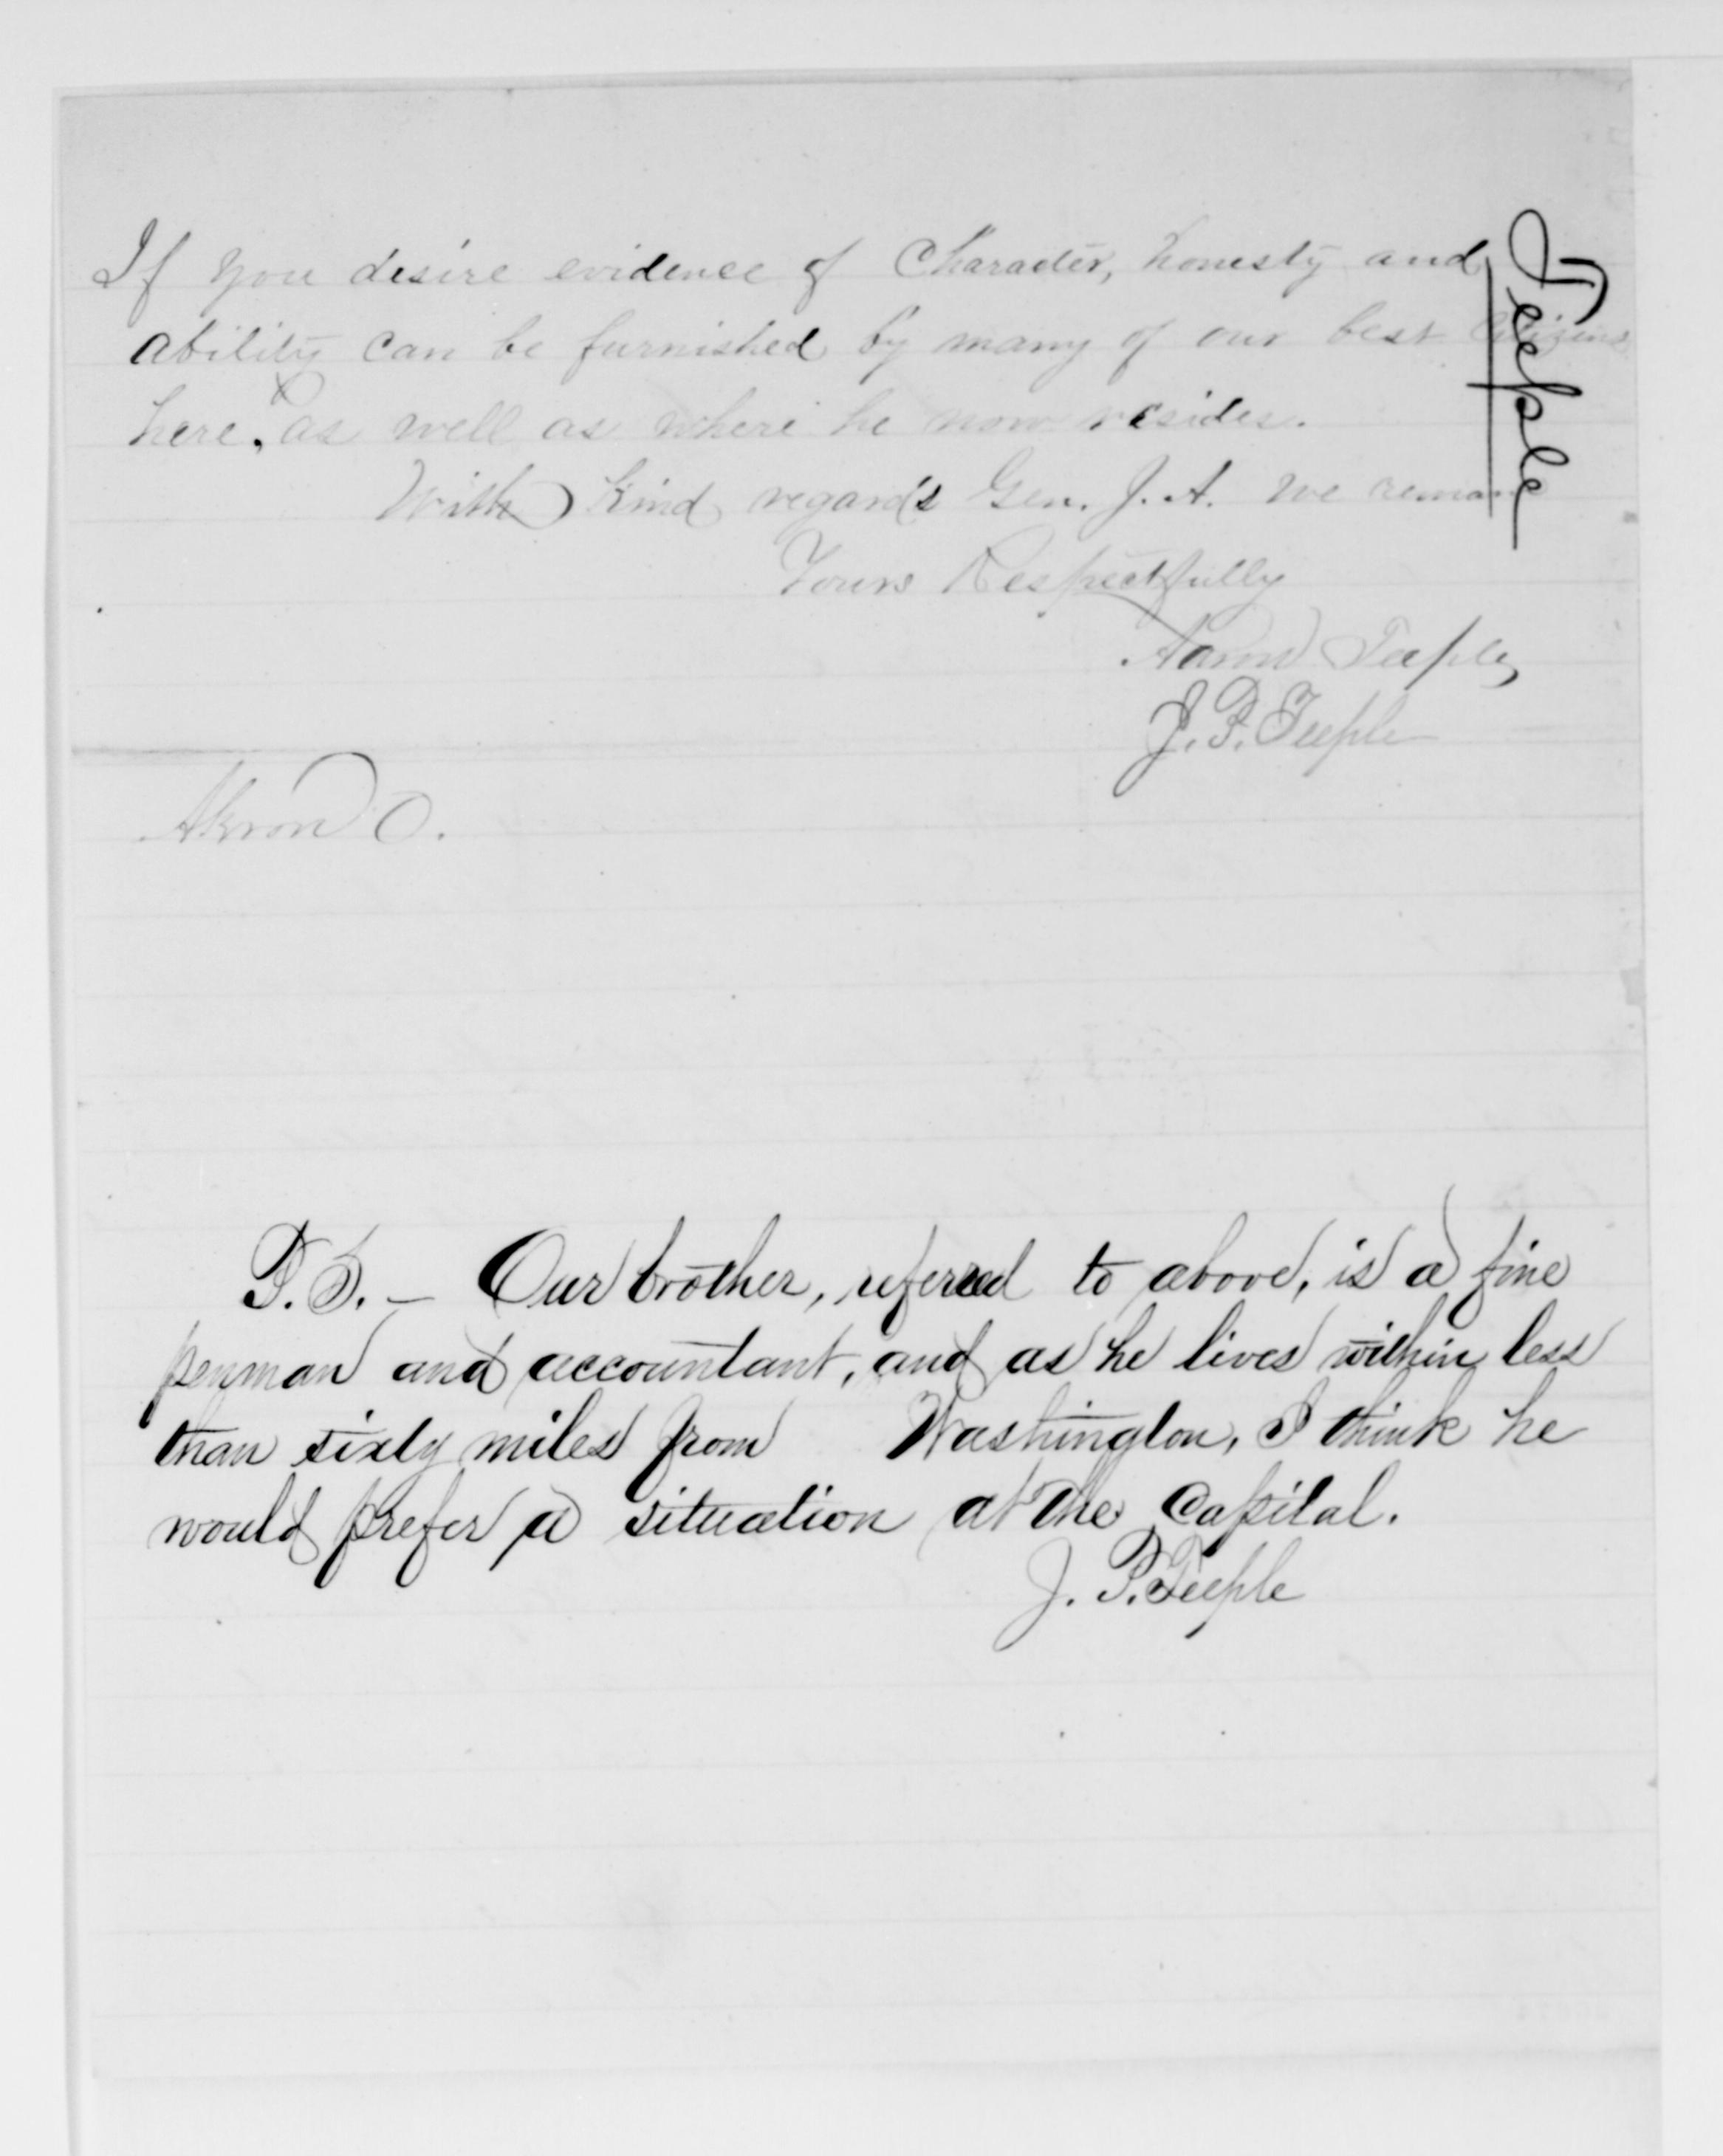 If you desire evidence of Character, honesty and
ability can be furnished by many of our best Citizens
here, as well as where he now resides.
With Kind regards Gen. J. A. we remain
Yours Respectfully
Aaron Teeple
J. P. Teeple
Akron O.
Teeple
P.S. — Our brother, referred to above, is a fine
penman and accountant, and as he lives within less
than sixty miles from Washington, I think he
would prefer a situation at the Capital.
J. P. Teeple